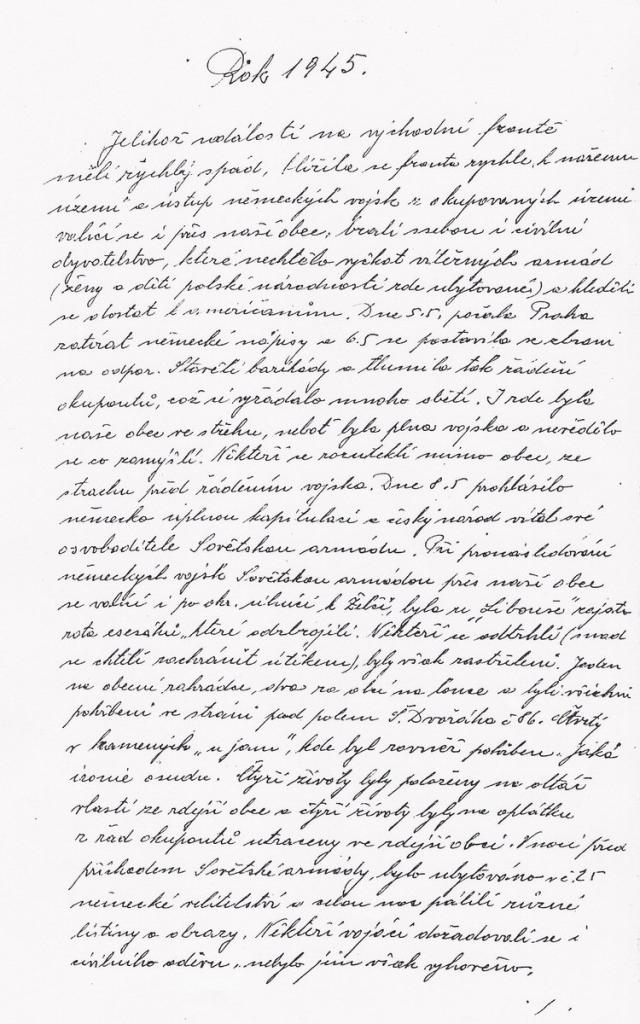 Rok 1945.
Jelikož události na východní frontě
měli rychlý spád, blížila se fronta rychle k našemu
území a ústup německých vojsk z okupovaných území
valící se i přes naší obec, brali ssebou i civilní
obyvatelstvo, které nechtělo vyčkat vítězných armád
(ženy a děti polské národnosti zde ubytované) a hleděli
se dostat k američanům. Dne 5.5. počala Praha
zatírat německé nápisy a 6.5 se postavila se zbraní
na odpor. Stavěli barikády a tlumila tak řádění
okupantů, což si vyžádalo mnoho obětí. I zde byla
naše obec ve střehu, neboť byla plna vojska a nevědělo
se co zamýšlí. Někteří se rozutekli mimo obec, ze
strachu před řáděním vojska. Dne 8.5 prohlásilo
německo úplnou kapitulaci a český národ vítal své
osvoboditele Sovětskou armádu. Při pronásledování
německých vojsk Sovětskou armádou přes naší obec
se valící i po okr. silnici k Želči, byla u „Libouše" zajata
rota esesáků, které odzbrojili. Někteří se odtrhli (snad
se chtěli zachránit útěkem), byly však zastřeleni. Jeden
na obecní zahrádce, dva za obcí na louce a byli všichni
pohřbeni ve stráni pod polem Š. Dvořáka č 86. Čtvrtý
v kamených „u jam", kde byl rovněž pohřben. Jaká
ironie osudu. Čtyři životy byly položeny na oltář
vlasti ze zdejší obce a čtyři životy byly na oplátku
z řad okupantů utraceny ve zdejší obci. V noci před
příchodem Sovětské armády, bylo ubytováno v č. 25
německé velitelství a celou noc pálili různé
listiny a obrazy. Někteří vojáci dožadovali se i
civilního oděvu, nebylo jim však vyhověno.